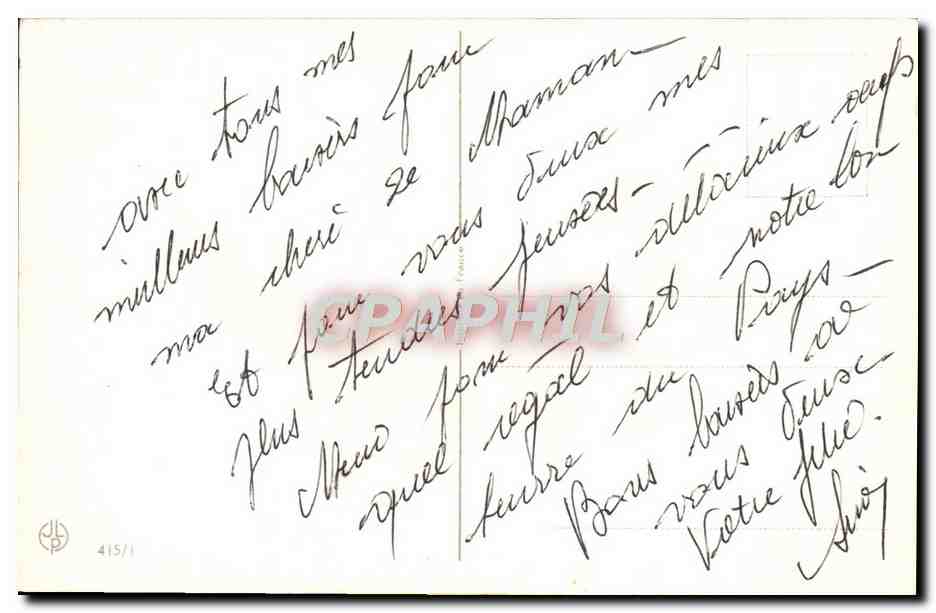 avec tous mes
milleurs baisers pour
ma cheri de Maman —
Et pour vous deux mes
plus tendres pensées —
Merci pour vos délicieux oeufs
quel régal et notre bon
beurre du Pays —
Bons baisers a
vous deux —
Votre fille.
CPAPHIL
JLP
415/1